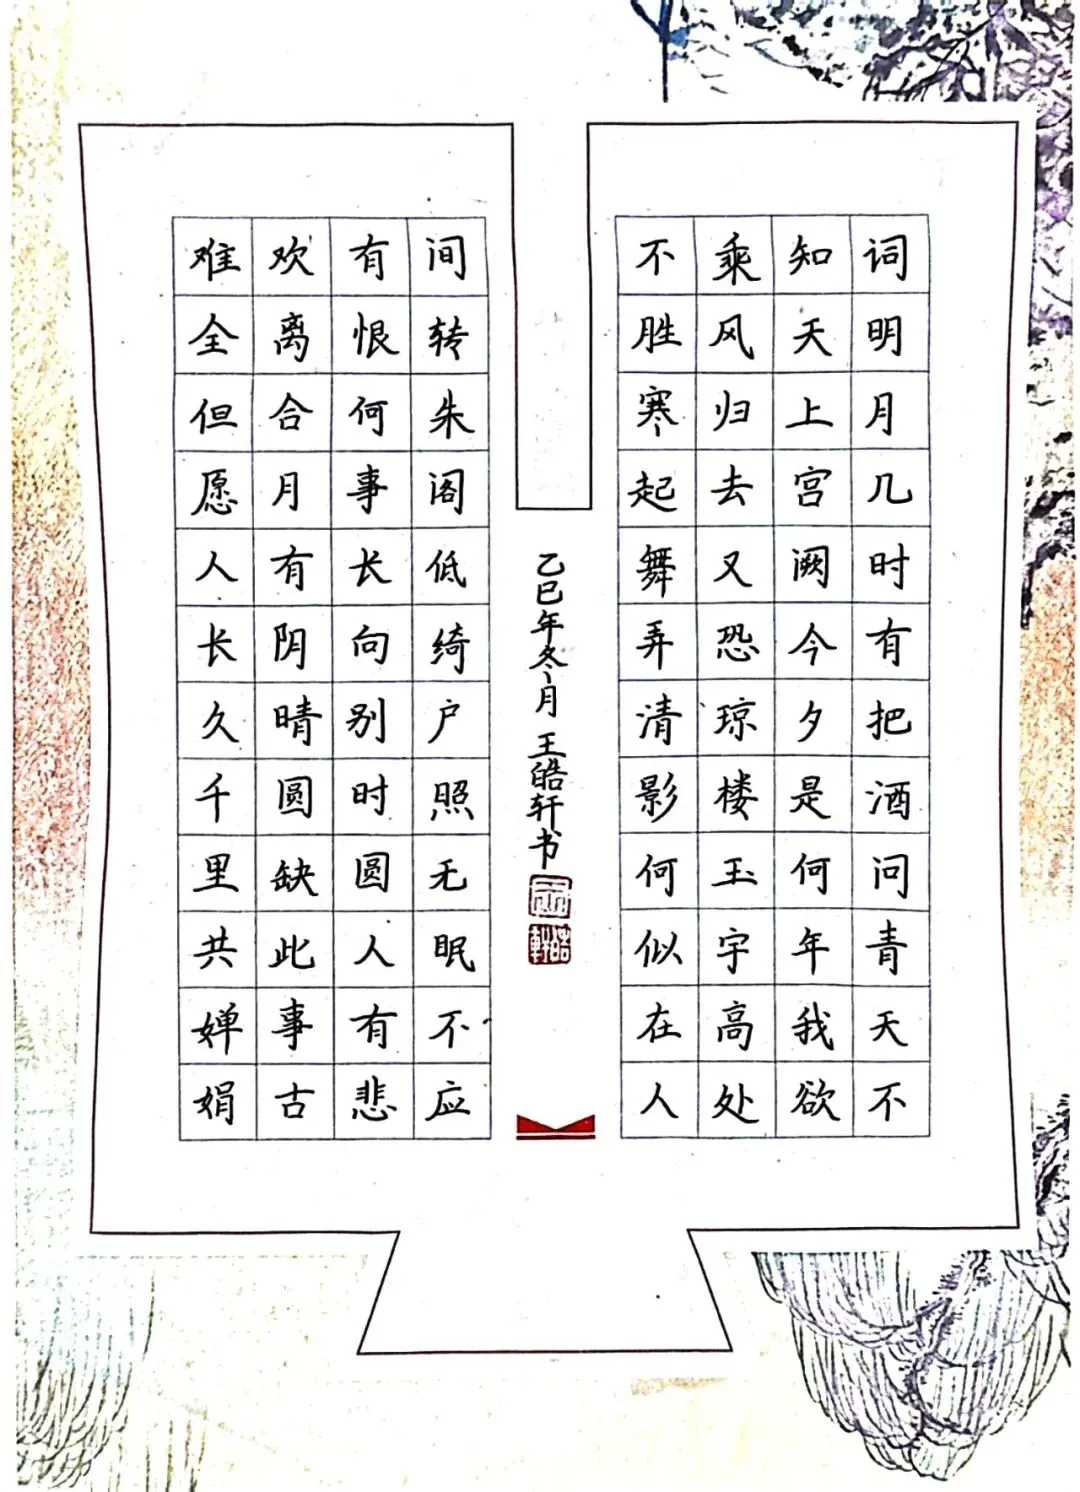 词明月几时有把酒问青天不
知天上宫阙今夕是何年我欲
乘风归去又恐琼楼玉宇高处
不胜寒起舞弄清影何似在人
间转朱阁低绮户照无眠不应
有恨何事长向别时圆人有悲
欢离合月有阴晴圆缺此事古
难全但愿人长久千里共婵娟
乙巳年冬月 王皓轩书
皓軒